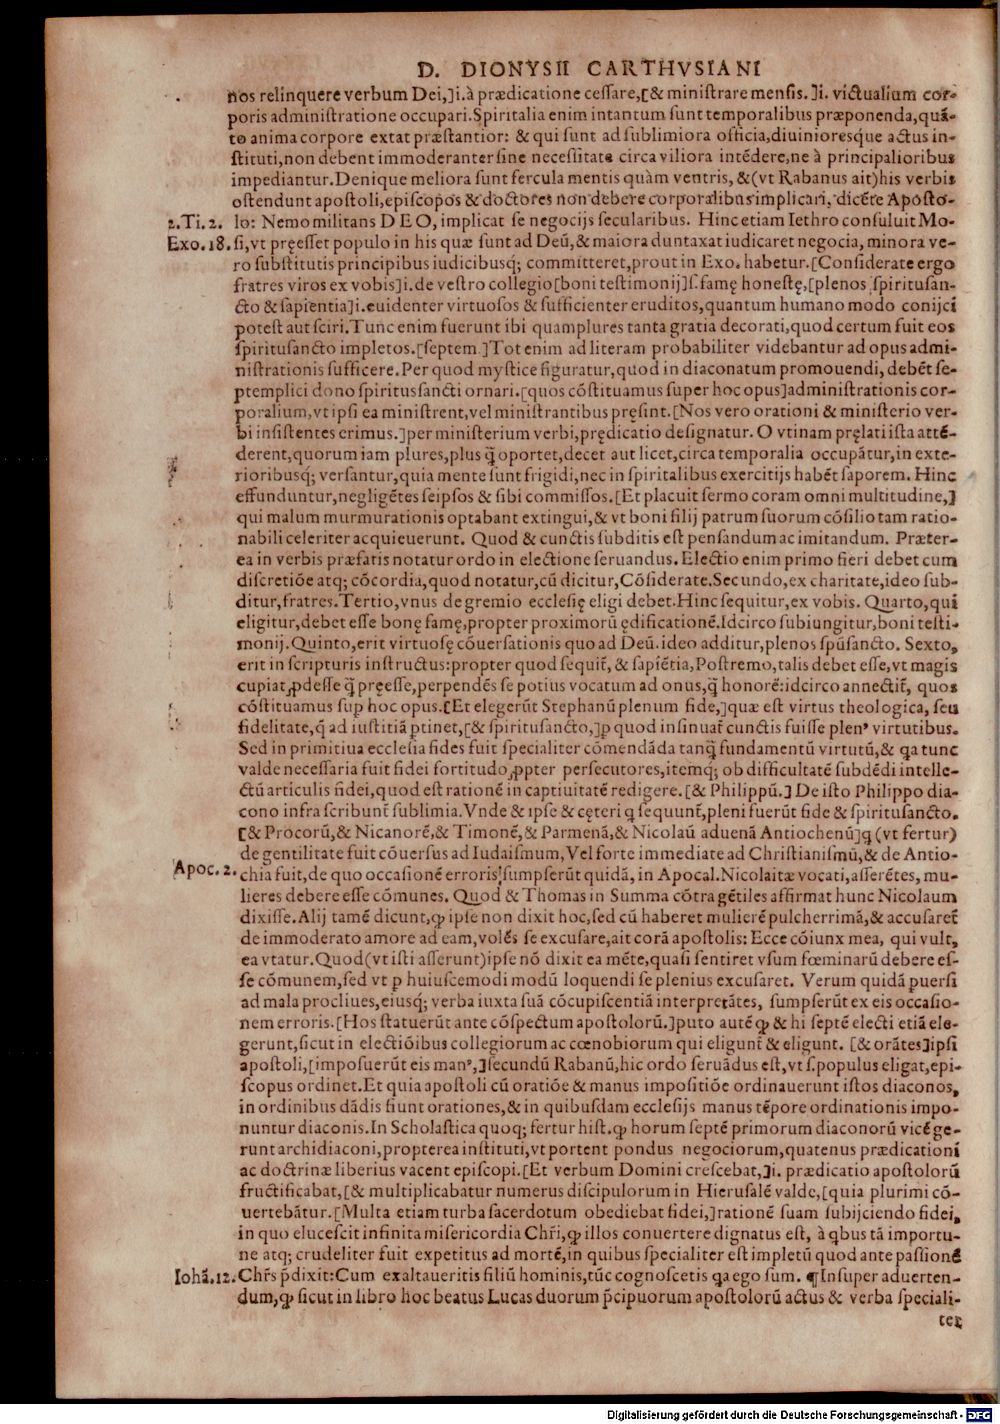 D. DIONYSII CARTHVSIANI
nos relinquere verbum Dei,]i.à prædicatione ceſſare,[& miniſtrare menſis.]i. victualium cor-
poris adminiſtratione occupari.Spiritalia enim intantum ſunt temporalibus præponenda,quã-
to anima corpore extat præſtantior: & qui ſunt ad ſublimiora officia,diuinioresque actus in-
ſtituti,non debent immoderanter ſine neceſſitate circa viliora intẽdere,ne à principalioribus
impediantur.Denique meliora ſunt fercula mentis quàm ventris, &(vt Rabanus ait)his verbis
oſtendunt apoſtoli,epiſcopos & doctores non debere corporalibus implicari, dicẽte Apoſto-
2.Ti.2. lo: Nemo militans DEO, implicat ſe negocijs ſecularibus. Hinc etiam Iethro conſuluit Mo-
Exo.18. ſi,vt pręeſſet populo in his quæ ſunt ad Deũ,& maiora duntaxat iudicaret negocia, minora ve-
ro ſubſtitutis principibus iudicibusq; committeret,prout in Exo. habetur.[Conſiderate ergo
fratres viros ex vobis]i.de veſtro collegio[boni teſtimonij]ſ.famę honeſtę,[plenos ſpirituſan-
cto & ſapientia]i.euidenter virtuoſos & ſufficienter eruditos,quantum humano modo conijci
poteſt aut ſciri.Tunc enim fuerunt ibi quamplures tanta gratia decorati,quod certum fuit eos
ſpirituſancto impletos.[ſeptem.]Tot enim ad literam probabiliter videbantur ad opus admi-
niſtrationis ſufficere.Per quod myſtice figuratur,quod in diaconatum promouendi, debẽt ſe-
ptemplici dono ſpirituſſancti ornari.[quos cõſtituamus ſuper hoc opus]adminiſtrationis cor-
poralium,vt ipſi ea miniſtrent,vel miniſtrantibus pręſint.[Nos vero orationi & miniſterio ver-
bi inſiſtentes erimus.]per miniſterium verbi,prędicatio deſignatur. O vtinam pręlati iſta attẽ-
derent,quorum iam plures,plus q̃ oportet,decet aut licet,circa temporalia occupãtur,in exte-
rioribusq; verſantur,quia mente ſunt frigidi,nec in ſpiritalibus exercitijs habẽt ſaporem. Hinc
effunduntur,negligẽtes ſeipſos & ſibi commiſſos.[Et placuit ſermo coram omni multitudine,]
qui malum murmurationis optabant extingui,& vt boni filij patrum ſuorum cõſilio tam ratio-
nabili celeriter acquieuerunt. Quod & cunctis ſubditis eſt penſandum ac imitandum. Præter-
ea in verbis præfatis notatur ordo in electione ſeruandus.Electio enim primo fieri debet cum
diſcretiõe atq; cõcordia,quod notatur,cũ dicitur,Cõſiderate.Secundo,ex charitate,ideo ſub-
ditur,fratres.Tertio,vnus de gremio eccleſię eligi debet.Hinc ſequitur,ex vobis. Quarto,qui
eligitur,debet eſſe bonę famę,propter proximorũ ędificationẽ.Idcirco ſubiungitur,boni teſti-
monij.Quinto,erit virtuoſę cõuerſationis quo ad Deũ.ideo additur,plenos ſpũſancto. Sexto,
erit in ſcripturis inſtructus:propter quod ſequit̃, & ſapiẽtia,Poſtremo,talis debet eſſe,vt magis
cupiat ꝓdeſſe q̃ pręeſſe,perpendẽs ſe potius vocatum ad onus,q̃ honorẽ:idcirco annectit̃, quos
cõſtituamus ſup hoc opus.[Et elegerũt Stephanũ plenum fide,]quæ eſt virtus theologica, ſeu
fidelitate,q̃ ad iuſtitiã ꝑtinet,[& ſpirituſancto,]ꝑ quod inſinuat̃ cunctis fuiſſe plenꝰ virtutibus.
Sed in primitiua eccleſia fides fuit ſpecialiter cõmendãda tanq̃ fundamentũ virtutũ,& qa tunc
valde neceſſaria fuit fidei fortitudo ꝓpter perſecutores,itemq; ob difficultatẽ ſubdẽdi intelle-
ctũ articulis fidei,quod eſt rationẽ in captiuitatẽ redigere.[& Philippũ.] De iſto Philippo dia-
cono infra ſcribunt̃ ſublimia.Vnde & ipſe & cęteri q ſequunt̃,pleni fuerũt fide & ſpirituſancto.
[& Procorũ,& Nicanorẽ,& Timonẽ,& Parmenã,& Nicolaũ aduenã Antiochenũ]q (vt fertur)
de gentilitate fuit cõuerſus ad Iudaiſmum,Vel forte immediate ad Chriſtianiſmũ,& de Antio-
Apoc.2. chia fuit,de quo occaſionẽ erroris ſumpſerũt quidã,in Apocal.Nicolaitæ vocati,aſſerẽtes, mu-
lieres debere eſſe cõmunes. Quod & Thomas in Summa cõtra gẽtiles affirmat hunc Nicolaum
dixiſſe.Alij tamẽ dicunt,ꝙ ipſe non dixit hoc,ſed cũ haberet mulierẽ pulcherrimã,& accuſaret̃
de immoderato amore ad eam,volẽs ſe excuſare,ait corã apoſtolis: Ecce cõiunx mea, qui vult,
ea vtatur.Quod(vt iſti aſſerunt)ipſe nõ dixit ea mẽte,quaſi ſentiret vſum fœminarũ debere eſ-
ſe cõmunem,ſed vt ꝑ huiuſcemodi modũ loquendi ſe plenius excuſaret. Verum quidã puerſi
ad mala procliues,eiusq; verba iuxta ſuã cõcupiſcentiã interpretãtes, ſumpſerũt ex eis occaſio-
nem erroris.[Hos ſtatuerũt ante cõſpectum apoſtolorũ.]puto autẽ ꝙ & hi ſeptẽ electi etiã ele-
gerunt,ſicut in electiõibus collegiorum ac cœnobiorum qui eligunt̃ & eligunt. [& orãtes]ipſi
apoſtoli,[impoſuerũt eis manꝰ,]ſecundũ Rabanũ,hic ordo ſeruãdus eſt,vt ſ.populus eligat,epi-
ſcopus ordinet.Et quia apoſtoli cũ oratiõe & manus impoſitiõe ordinauerunt iſtos diaconos,
in ordinibus dãdis fiunt orationes,& in quibuſdam eccleſijs manus tẽpore ordinationis impo-
nuntur diaconis.In Scholaſtica quoq; fertur hiſt.ꝙ horum ſeptẽ primorum diaconorũ vicẽ ge-
runt archidiaconi,propterea inſtituti,vt portent pondus negociorum,quatenus prædicationi
ac doctrinæ liberius vacent epiſcopi.[Et verbum Domini creſcebat,]i. prædicatio apoſtolorũ
fructificabat,[& multiplicabatur numerus diſcipulorum in Hieruſalẽ valde,[quia plurimi cõ-
uertebãtur.[Multa etiam turba ſacerdotum obediebat fidei,]rationẽ ſuam ſubijciendo fidei,
in quo eluceſcit infinita miſericordia Chr̃i,ꝙ illos conuertere dignatus eſt, à qbus tã importu-
ne atq; crudeliter fuit expetitus ad mortẽ,in quibus ſpecialiter eſt impletũ quod ante paſſionẽ
Iohã.12. Chr̃s p̃dixit:Cum exaltaueritis filiũ hominis,tũc cognoſcetis qa ego ſum. ¶Inſuper aduerten-
dum,ꝙ ſicut in libro hoc beatus Lucas duorum p̃cipuorum apoſtolorũ actus & verba ſpeciali-
ter
Digitalisierung gefördert durch die Deutsche Forschungsgemeinschaft - DFG